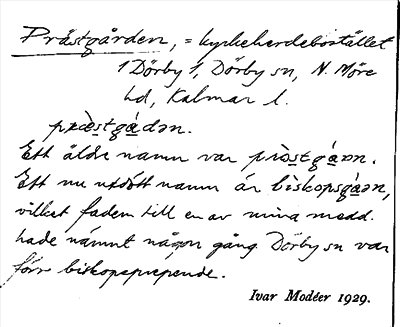 Prästgården, = kyrkoherdebostället
1 Dörby 1, Dörby sn, N. Möre
hd, Kalmar l.
præ̀stgá̱dən.
Ett äldre namn var prò̱stgá̱ən.
Ett nu utdött namn är bìskopsgá̱ən,
vilket fadern till en av mina medd.
hade nämnt någon gång. Dörby sn var
förr biskopsprepende.
Ivar Modéer 1929.